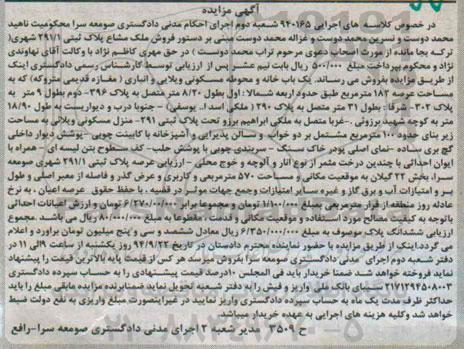 آگهی مزایده
در خصوص کلاسه های اجرایی 940165 شعبه دوم اجرای احکام مدنی دادگستری صومعه سرا محکومیت ناهید
محمد دوست و نسرین محمد دوست و غزاله محمد دوست مبنی بر دستور فروش ملک مشاع پلاک ثبتی 291/1 شهری(
ترکه بجا مانده از مورث اصحاب دعوی مرحوم تراب محمد دوست ) در حق مهری کاظم نژاد با وکالت آقای نهاوندی
نژاد و محکوم پرداخت مبلغ 500/000 ریال بابت نیم عشر پس از ارزیابی توسط کارشناس رسمی دادگستری اینک
از طریق مزایده بفروش می رساند. یک باب خانه و محوطه مسکونی ویلایی و انباری ( مغازه قدیمی متروکه) که به
مساحت عرصه 183 مترمربع طبق حدود اربعه شمالا : اول بطول 8/20 متر متصل به پلاک 396- دوم بطول 9 متر به
پلاک 302- شرقا : بطول 31 متر متصل به پلاک 290 ( ملکی اسدا.. یوسفی) - جنوبا درب و دیواریست به طول 18/90
متر به کوچه شهید برزوئی -غربا متصل به ملکی ابراهیم برزو تحت پلاک ثبتی 291- منزل مسکونی ویلایی به مساحت
زیر بنای حدود 100 مترمربع مشتمل بر دو خواب و سالن پذیرایی و آشپزخانه با کابینت چوبی -پوشش دیوار داخلی
گچ بری ساده -نمای اصلی پودر خاک سنگ- سربندی چوبی با پوشش حلب- کف سطوح بتن لیسه ای - همراه با
ایوان احداثی با چندین درخت مثمر از نوع انار و آلوچه و خوج محلی - ارزیابی عرصه پلاک ثبتی 291/1 شهری صومعه
سرا، بخش 22 گیلان به موقعیت مکانی و مساحت 570 مترمربعی و کاربری و عرض گذر و فاصله از معبر اصلی و طول
بر و امتیازات آب و برق گاز و غیره سایر امتیازات وجمع جهات موثر در قضیه ، با حفظ حقوق عرصه اعیان ، به نرخ
عادله روز منطقه از قرار مترمربعی 11/100/000 تومان و مجموعا برابر 6/270/000/000 تومان و ارزش اعیانات احداثی
باتوجه به کیفیت مصالح مورد استفاده و موقعیت مکانی و قدمت ، مقطوعا به مبلغ 80/000/000 ریال می باشد. مجموع
ارزیابی ششدانگ پلاک موصوف به مبلغ 6/350/000/000 ریال معادل ششصد و سی و پنج میلیون تومان براورد و اعلام
می گردد.اینک از طریق مزایده با حضور نماینده محترم دادستان در تاریخ 94/9/22 روز یکشنبه از ساعت 9 الی 11 در
دفتر شعبه دوم اجرای مدنی دادگستری صومعه سرا بفروش میرسد هر کس از قیمت پایه بالاترین قیمت را پیشنهاد
نماید فروخته خواهد شد ضمنا خریدار باید فی المجلس 10درصد قیمت پیشنهادی را به حساب سپرده دادگستری
2171294508003 نزد بانک ملی واریز و فیش را به دفتر شعبه تحویل نماید ضمنا برنده مزایده مابقی مبلغ را باید
حداکثر ظرف مدت یک ماه به حساب سپرده دادگستری واریز نمایید در غیراینصورت مبلغ واریزی به نفع دولت ضبط
خواهد شد وکلیه هزینه های اجرایی به عهده خریدار میباشد.
ح 3509 مدیر شعبه 2 اجرای مدنی دادگستری صومعه سرا-رافع